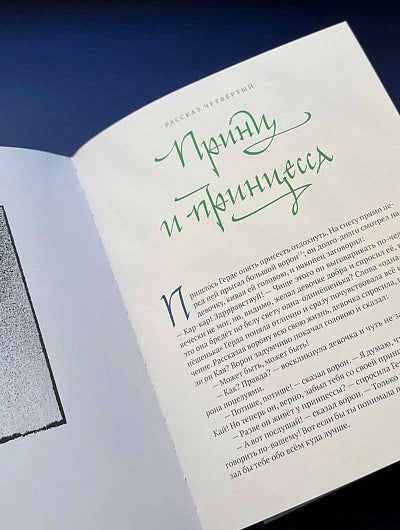 РАССКАЗ ЧЕТВЁРТЫЙ
Принц
и принцесса
Пришлось Герде опять присесть отдохнуть. На снегу прямо пе-
ред ней прыгал большой ворон; он долго-долго смотрел на
девочку, кивая ей головою, и наконец заговорил:
– Кар-кар! Здррравствуй! — Чище этого он выговаривать по-че-
ловечески не мог, но, видимо, желал девочке добра и спросил её,
это она бредёт по белу свету одна-одинёшенька? Слова «одна-
нёшенька» Герда поняла отлично и сразу почувствовала всё
чение. Рассказав ворону всю свою жизнь, девочка спросила,
ли он Кая? Ворон задумчиво покачал головой и сказал:
— Может быть, может быть!
— Как? Правда? — воскликнула девочка и чуть не за
рона поцелуями.
— Потише, потише! — сказал ворон. — Я думаю, что
Кай! Но теперь он, верно, забыл тебя со своей принц
— Разве он живёт у принцессы? — спросила Ге
— А вот послушай! — сказал ворон. — Только
говорить по-вашему! Вот если бы ты понимала п
зал бы тебе обо всём куда лучше.